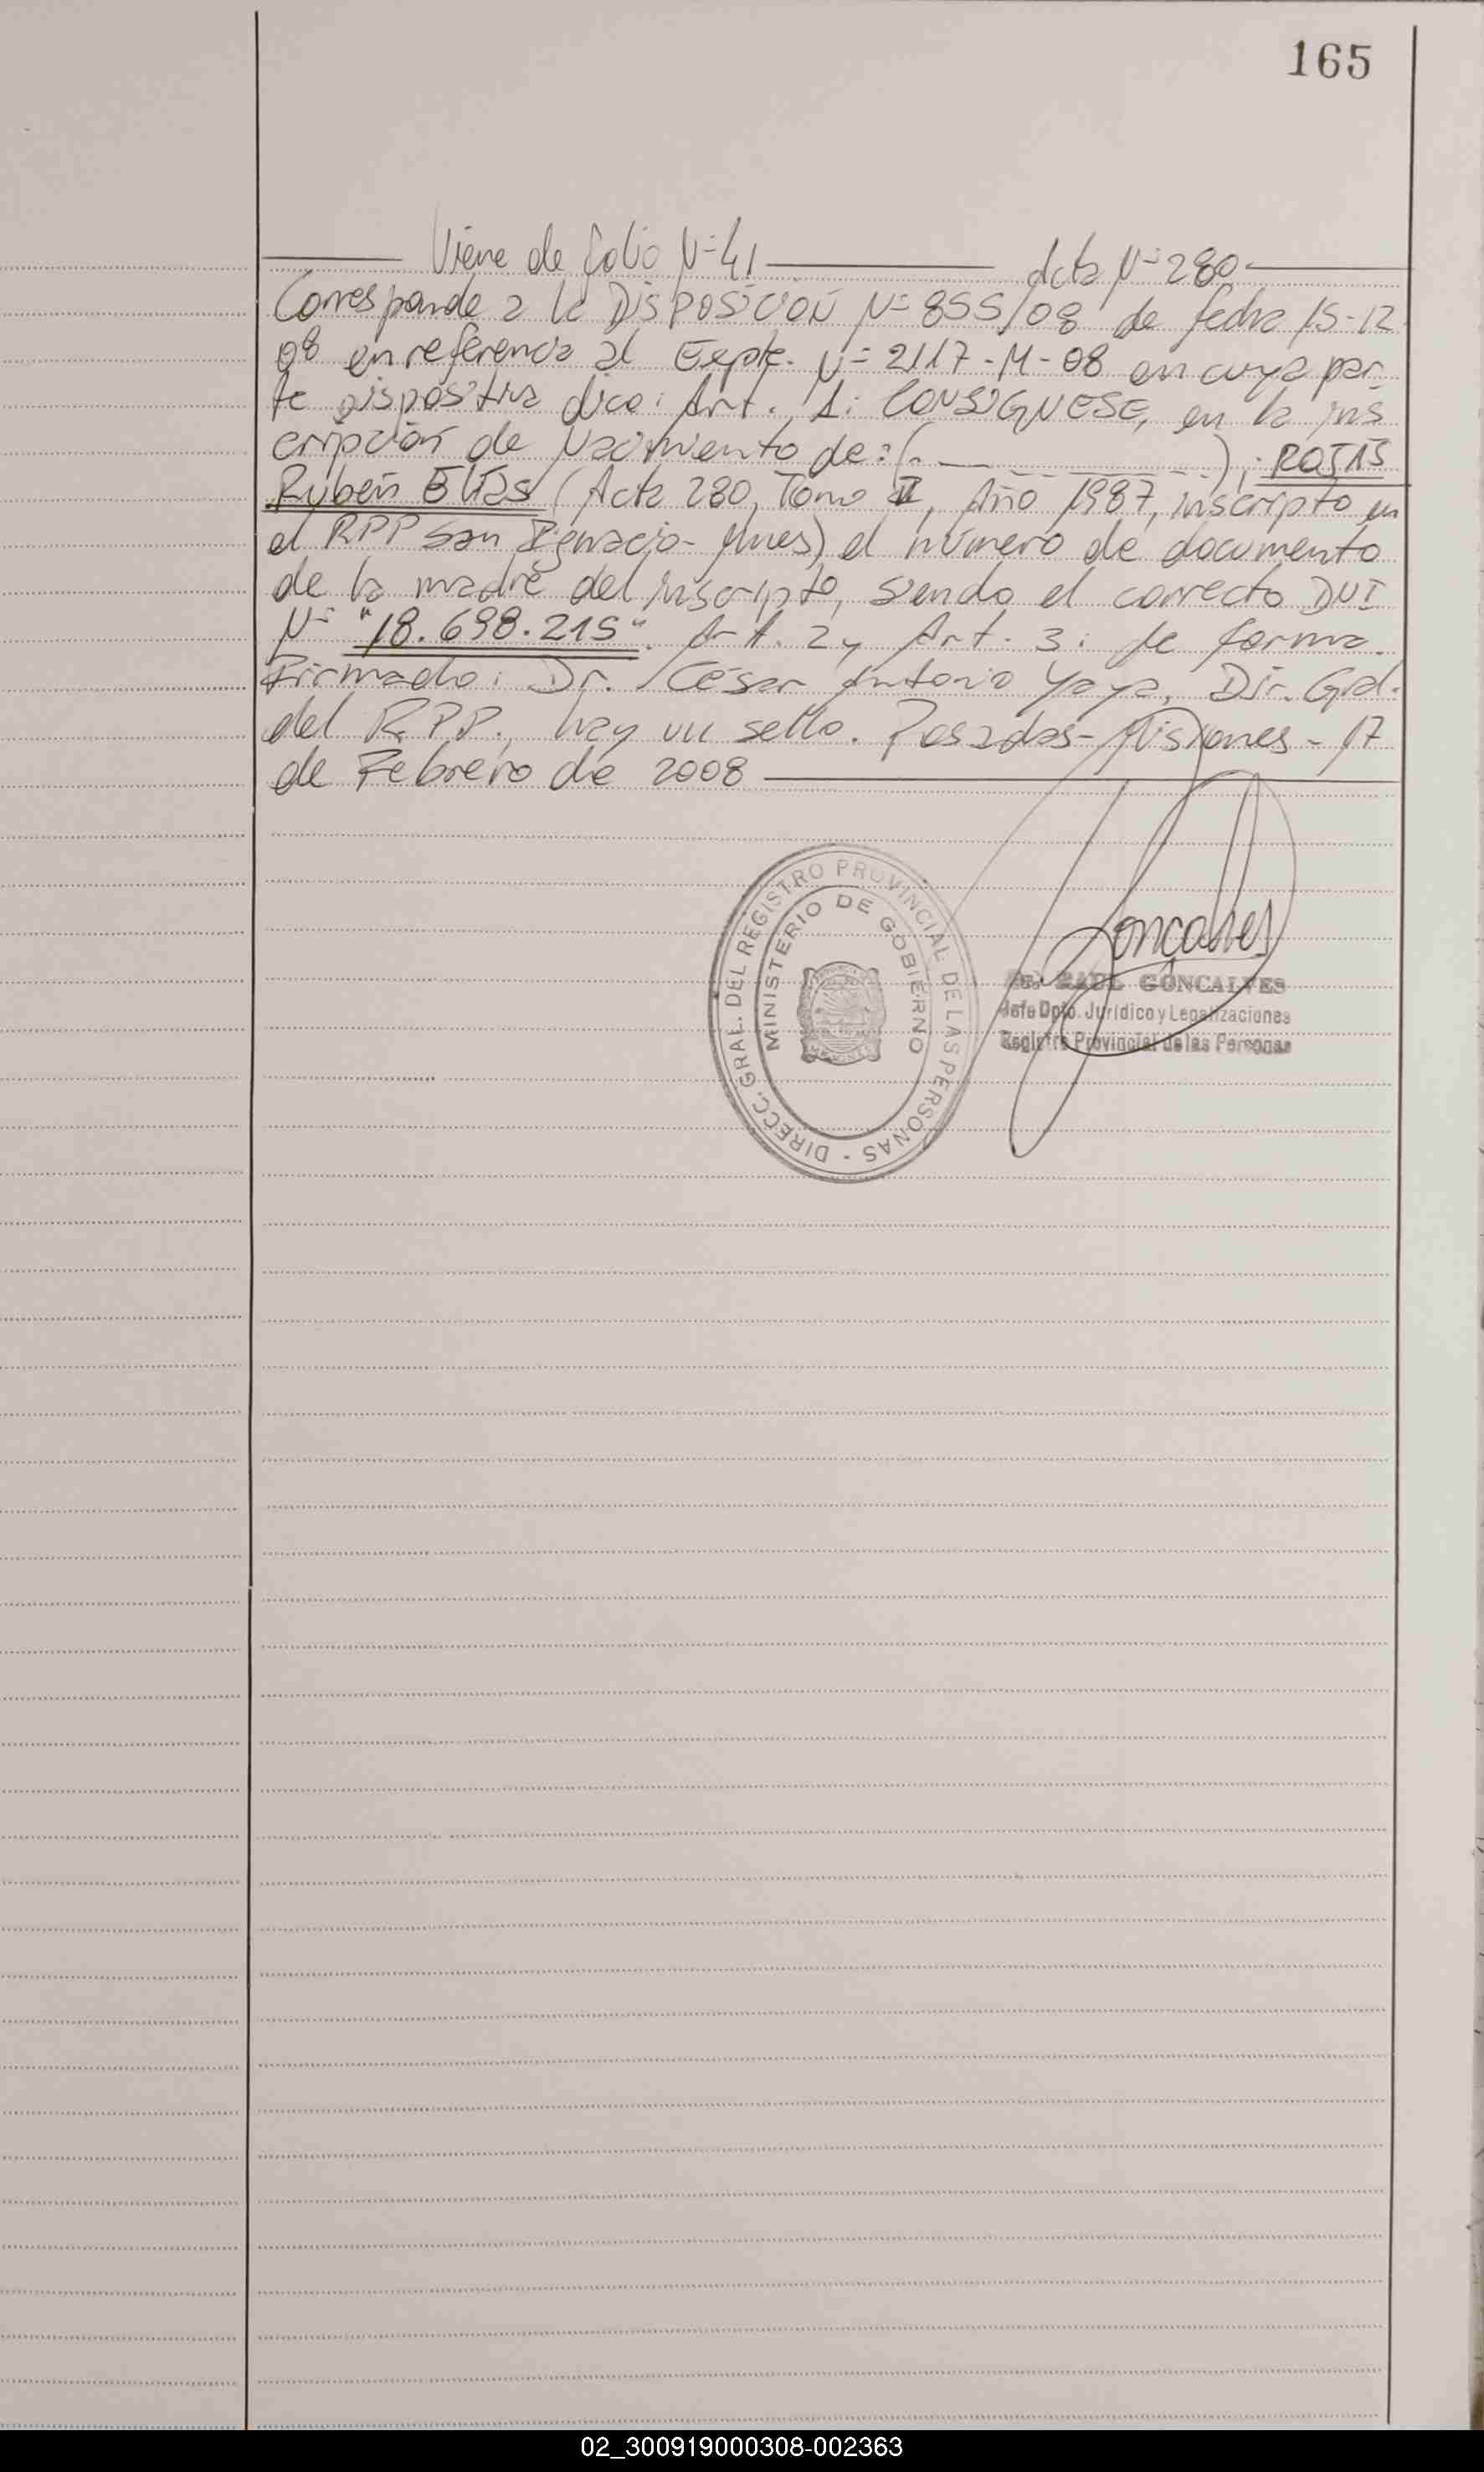 165
Viene de folio N=41 Acta N=280-
Corresponde a la DISPOSICIÓN N=855/08 de fecha 15-12
08 en referencia al Expte. N=2117-M-08 en cuya par-
te dispositiva dice: Art. 1: CONSIGNESE, en la ins
cripción de Nacimiento de: (-- — — — -), ROJAS
Rubén Elías (Acta 280, Tomo II, Año 1987, inscripto en
el RPP San Ignacio- Mnes) el número de documento
de la madre del inscripto, siendo el correcto DNI
N= "18.698.215". Art. 2 y Art. 3: de forma.
Firmado: Dr. César Antonio Yaya, Dir. Gral.
del R.P.P., hay un sello. Posadas-Misiones- 17
de Febrero de 2008
DIRECC. GRAL. DEL REGISTRO PROVINCIAL DE LAS PERSONAS -
MINISTERIO DE GOBIERNO
Goncalves
RAUL GONCALVES
Jefe Dpto. Jurídico y Legalizaciones
Registro Provincial de las Personas
02_300919000308-002363